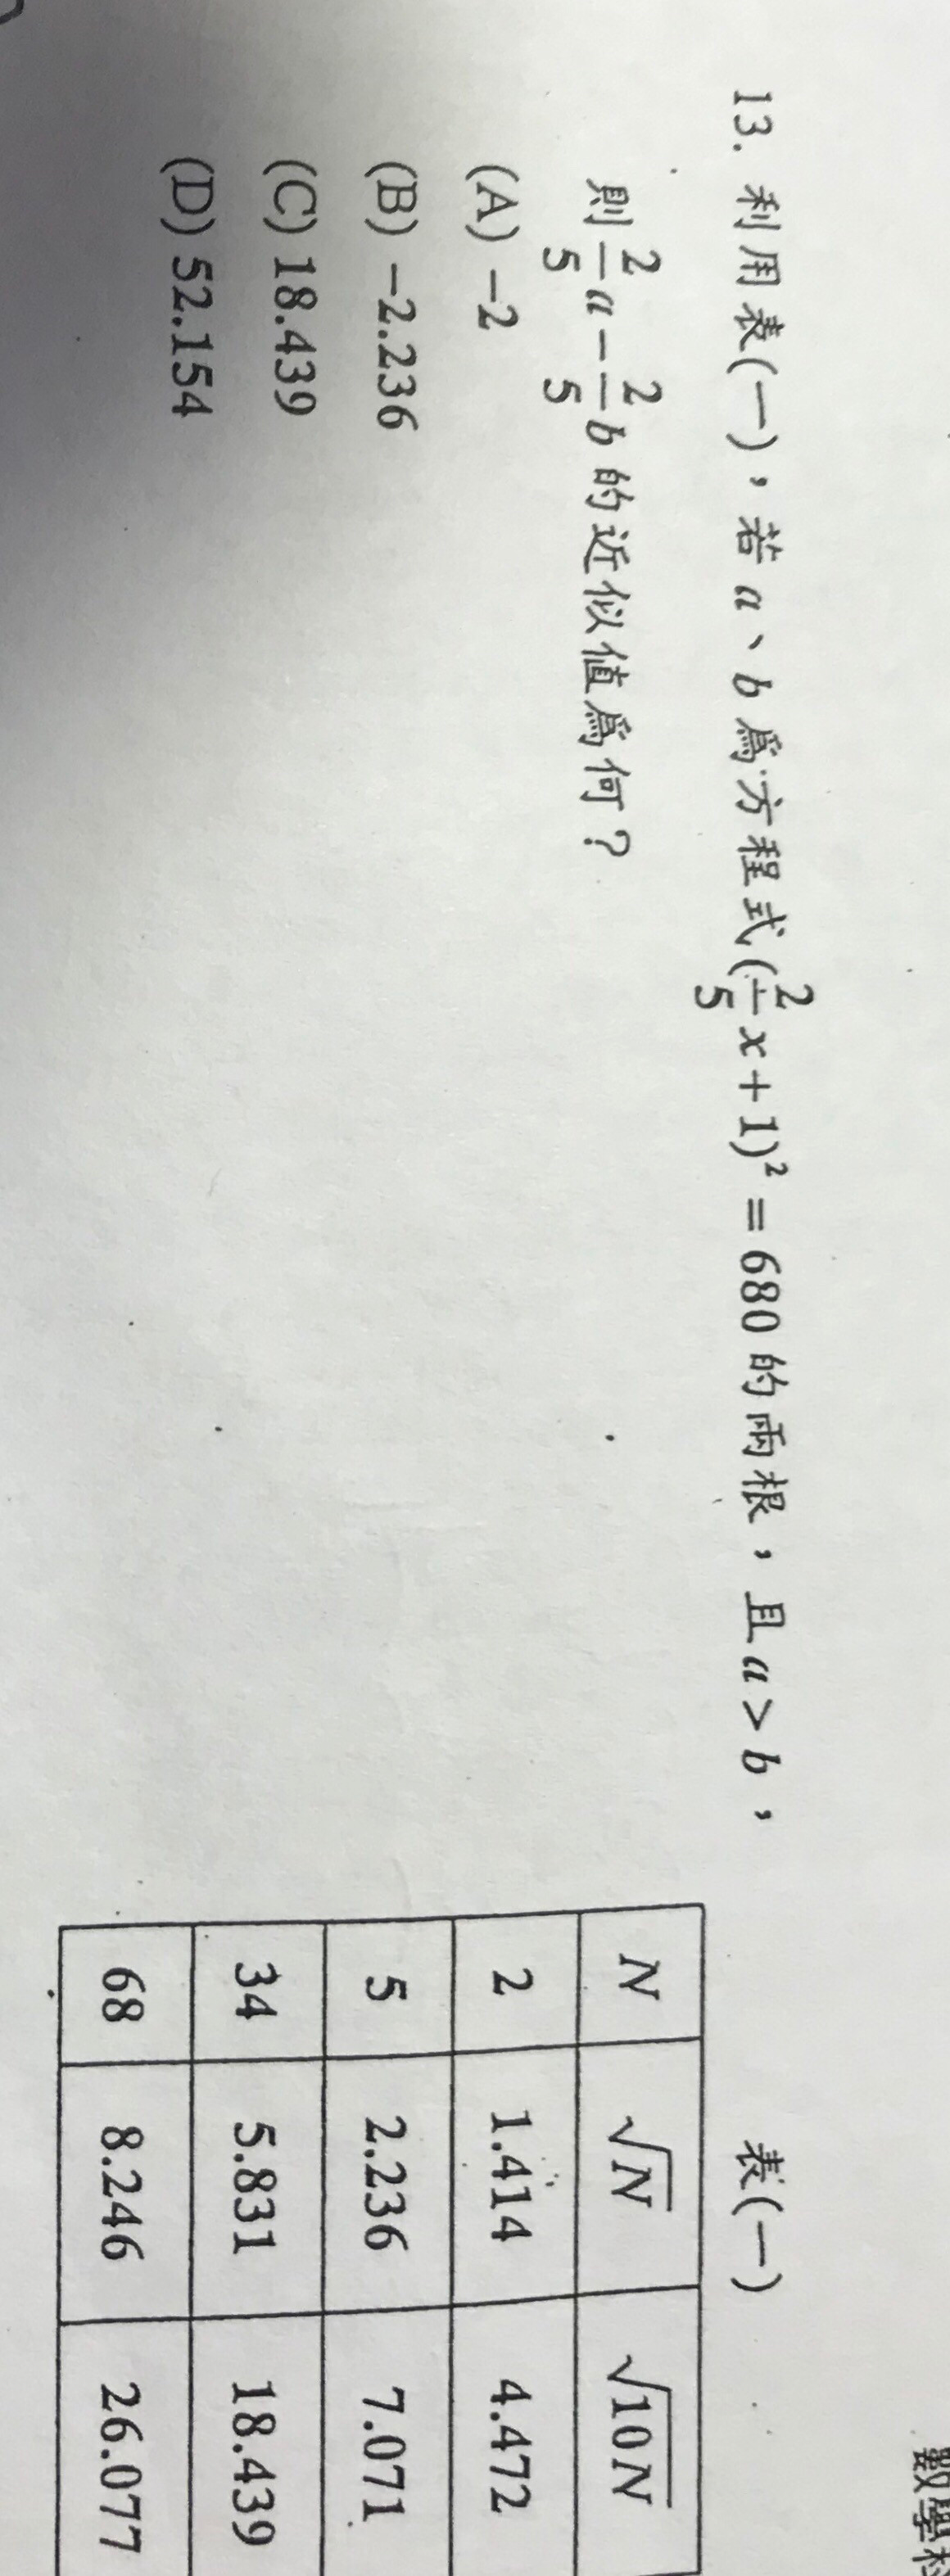 數學科
13. 利用表(一)，若 a、b 為方程式(2/5x+1)²=680 的兩根，且 a>b，
則 2/5a−2/5b 的近似值為何？
(A) −2
(B) −2.236
(C) 18.439
(D) 52.154
表(一)
N √N √10N
2 1.414 4.472
5 2.236 7.071
34 5.831 18.439
68 8.246 26.077